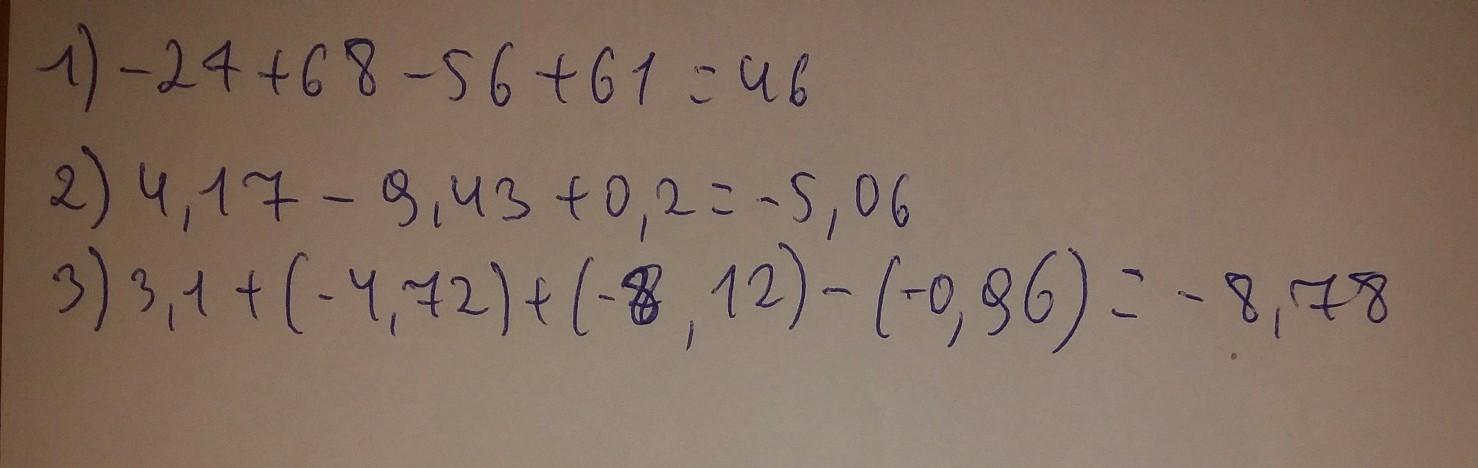 1) -24+68-56+61=46
2) 4,17-9,43+0,2=-5,06
3) 3,1+(-4,72)+(-8,12)-(-0,96)=-8,78